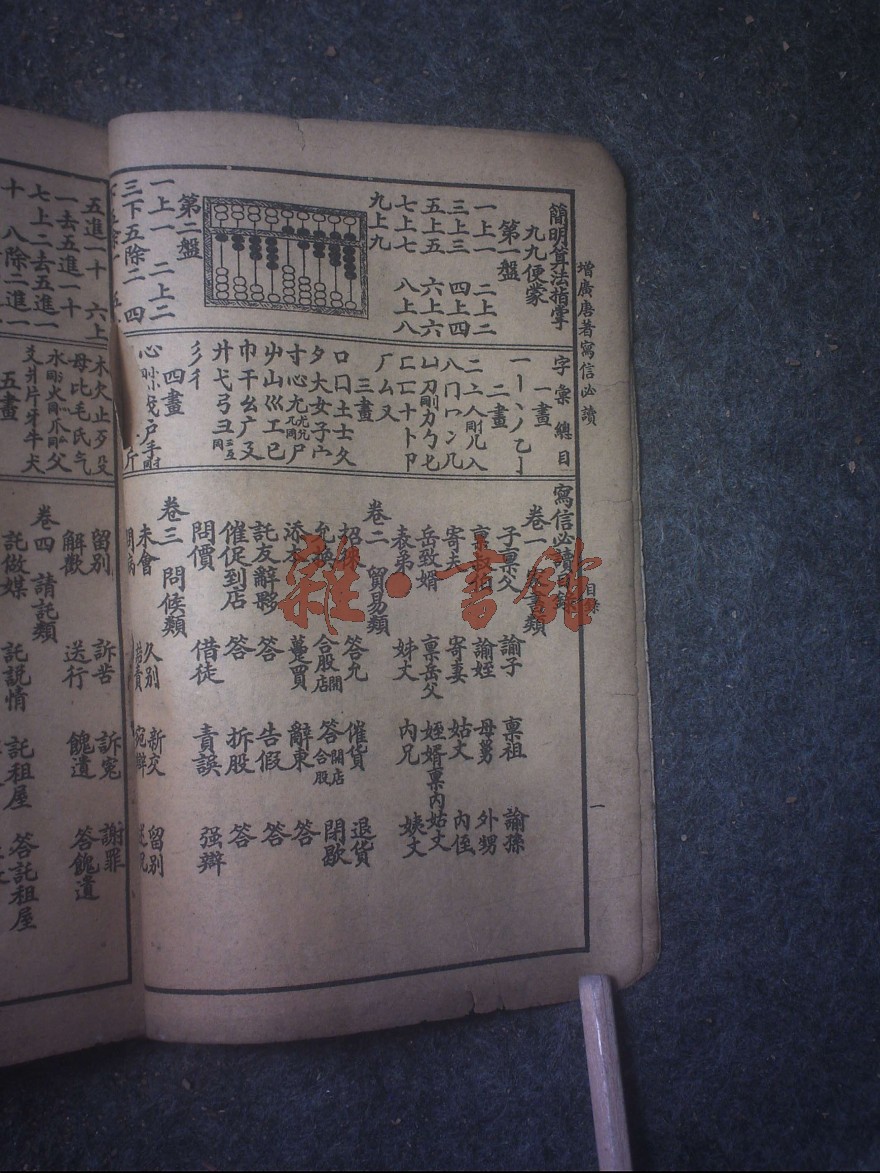 增廣唐著寫信必讀
目錄
一
簡明算法指掌
九九便蒙
第一盤
一上一 二上二
三上三 四上四
五上五 六上六
七上七 八上八
九上九
第二盤
一上一 二上二
三下五除二 四
五進一十 六上
一去五進一十
七上二去五進一
十 八除二進一
字彙總目
一畫
一丨丶丿乙亅
二畫
二亠人儿入
八冂冖冫几
凵刀力勹匕
匚匸十卜卩
厂厶又
三畫
口囗土士夂
夕大女子宀
寸小尢尸
屮山巛工己
巾干幺广廴
廾弋弓彐
彡彳
四畫
心 戈戶手
斤
木欠止歹殳
毋比毛氏气
水火爪父
爻爿片牙牛犬
五畫
寫信必讀目錄
卷一 家書類
子稟父 諭子 稟祖 諭孫
稟叔伯 諭姪 母舅 外甥
寄夫 寄妻 姑丈 內侄
岳致婿 稟岳父 姪婿稟內姑丈
表弟 姊丈 內兄 姨丈
卷二 貿易類
招股 答允 催貨 退貨
允換 合股開店 答開店合股 閉歇
添本 躉買 辭東 答
託友辭夥 答 告假 答
催促到店 答 拆股 答
問價 借徒 責誤 强辯
卷三 問候類
未會 久別 新交 留別
問病
留別 訴苦 訴寃 謝罪
解歉 送行 餽遺 答餽遺
卷四 請託類
託做媒 託說情 託租屋 答託租屋
雜·書館